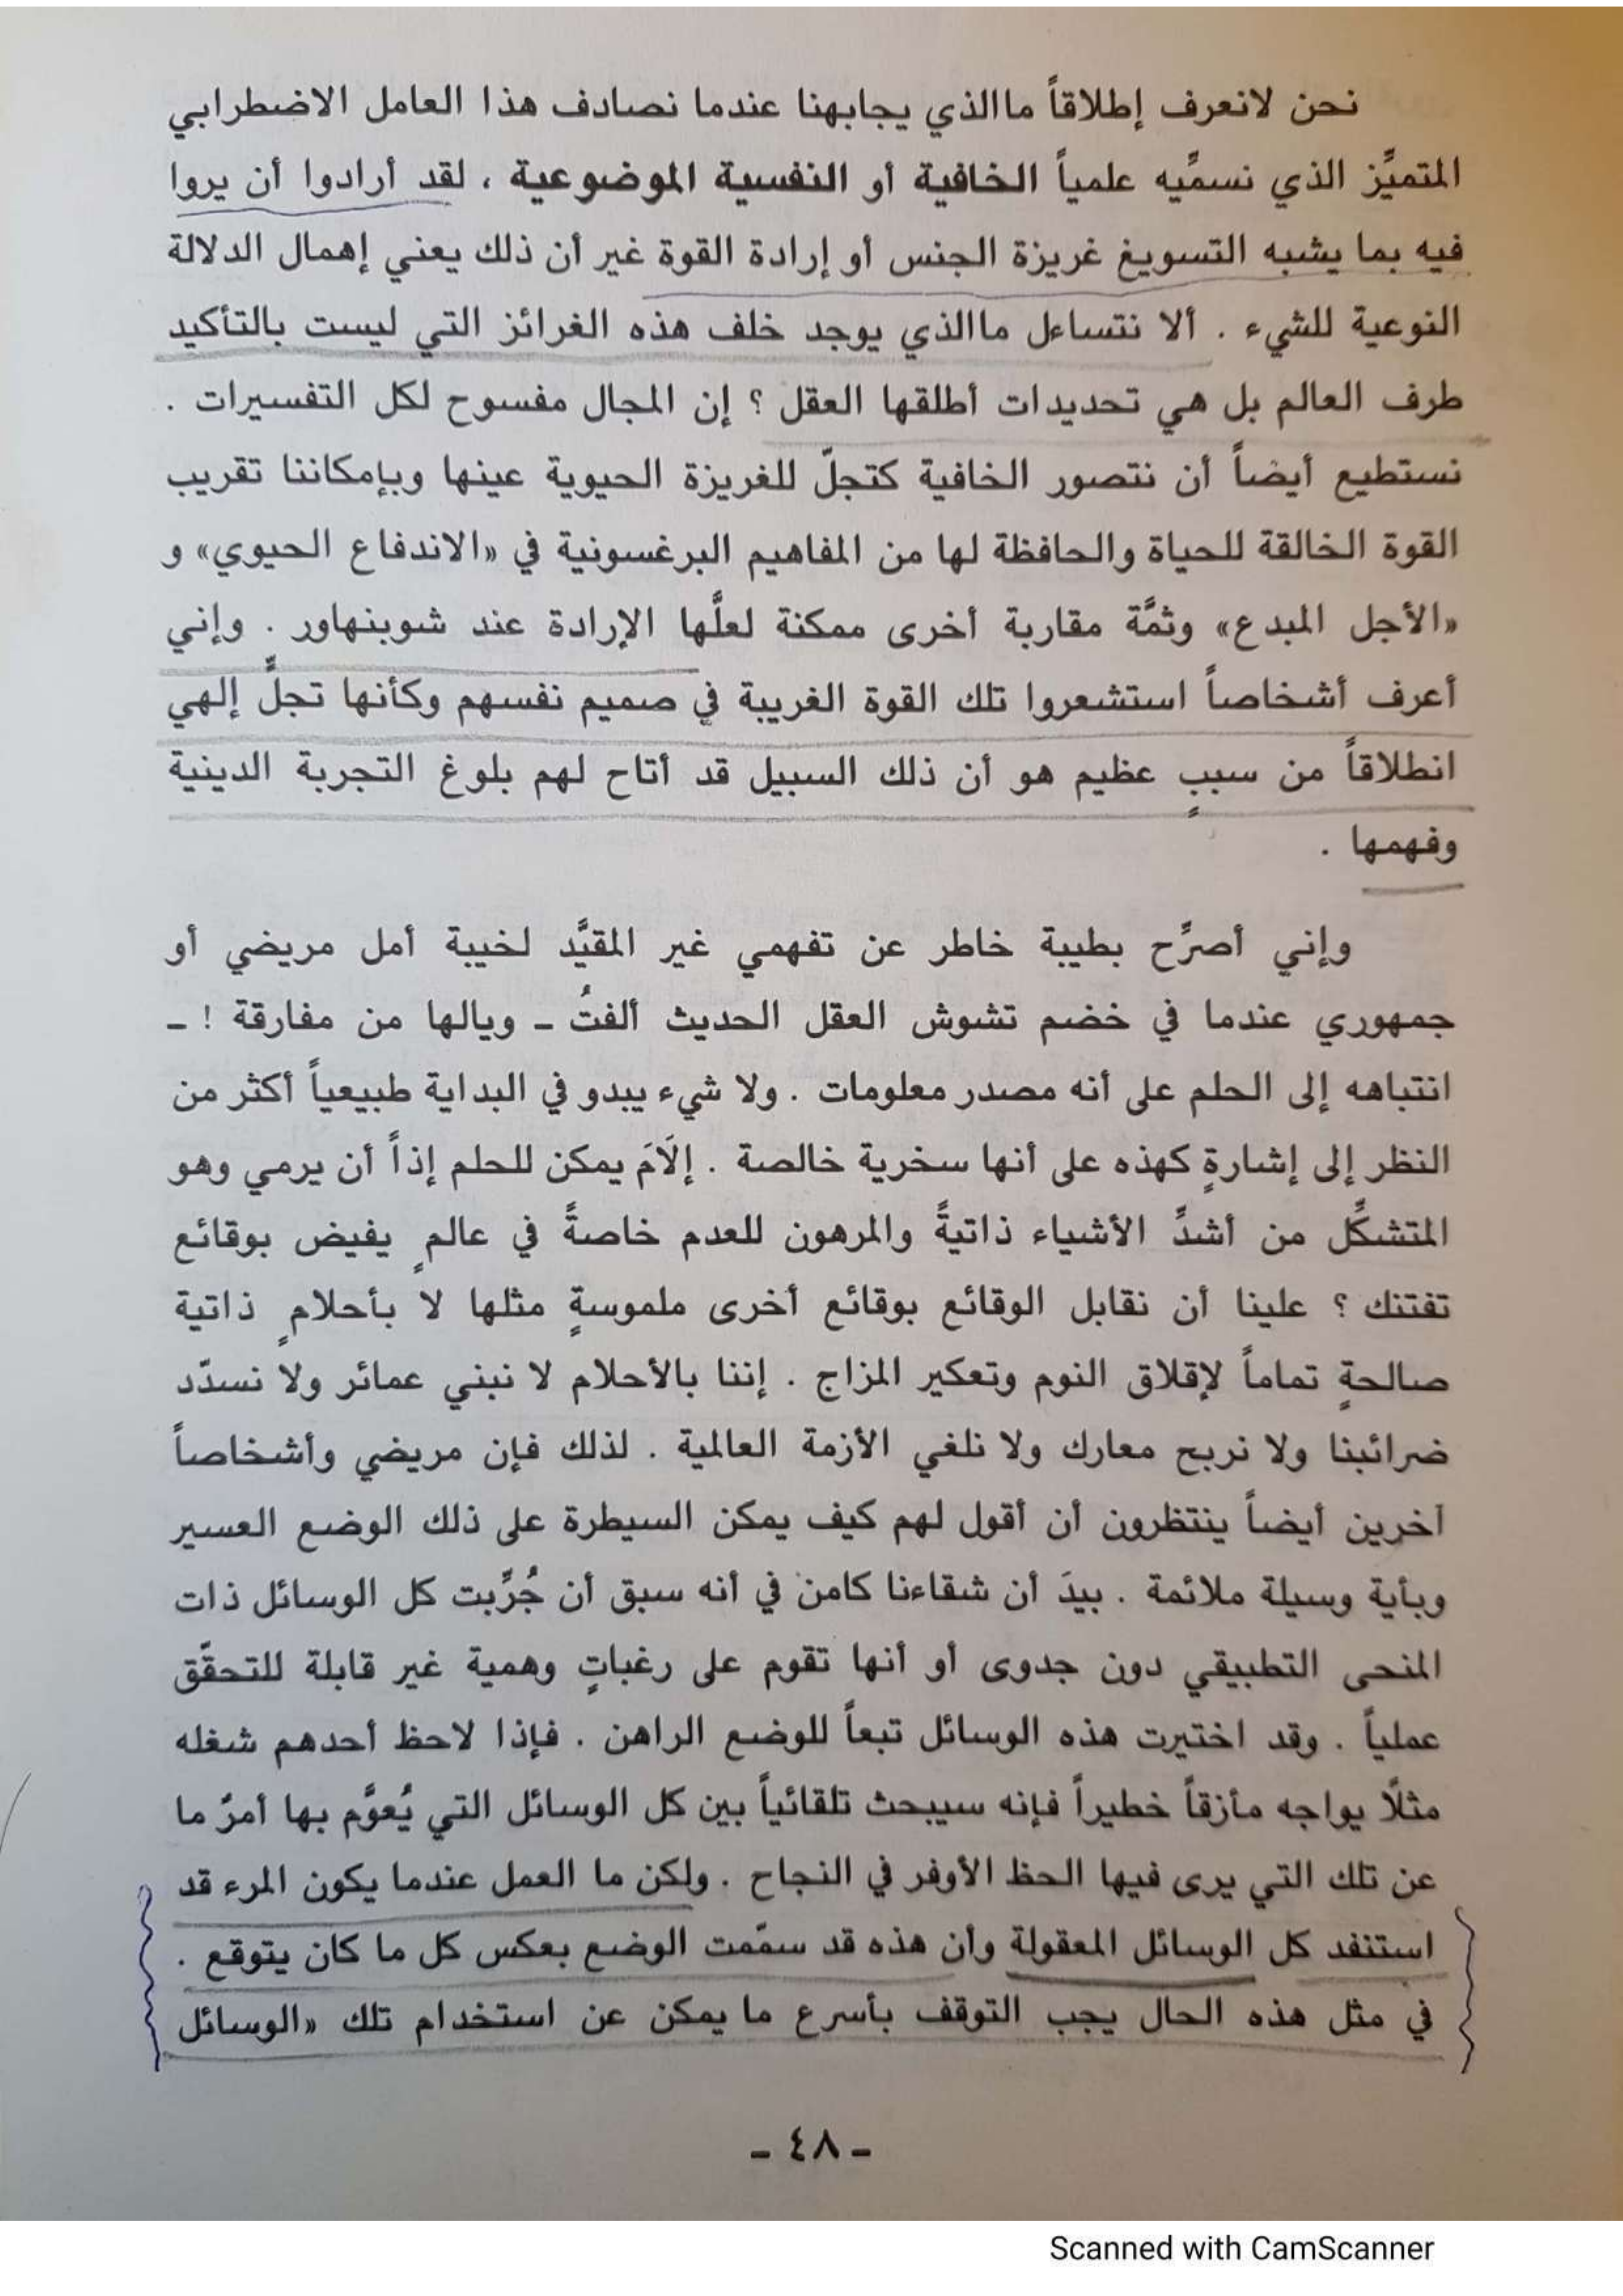 نحن لانعرف إطلاقاً ماالذي يجابهنا عندما نصادف هذا العامل الاضطرابي
المتميِّز الذي نسمِّيه علمياً الخافية أو النفسية الموضوعية ، لقد أرادوا أن يروا
فيه بما يشبه التسويغ غريزة الجنس أو إرادة القوة غير أن ذلك يعني إهمال الدلالة
النوعية للشيء . ألا نتساءل ماالذي يوجد خلف هذه الغرائز التي ليست بالتأكيد
طرف العالم بل هي تحديدات أطلقها العقل ؟ إن المجال مفسوح لكل التفسيرات .
نستطيع أيضاً أن نتصور الخافية كتجلّ للغريزة الحيوية عينها وبإمكاننا تقريب
القوة الخالقة للحياة والحافظة لها من المفاهيم البرغسونية في «الاندفاع الحيوي» و
«الأجل المبدع» وثمَّة مقاربة أخرى ممكنة لعلَّها الإرادة عند شوبنهاور . وإني
أعرف أشخاصاً استشعروا تلك القوة الغريبة في صميم نفسهم وكأنها تجلٍّ إلهي
انطلاقاً من سببٍ عظيم هو أن ذلك السبيل قد أتاح لهم بلوغ التجربة الدينية
وفهمها .
وإني أصرِّح بطيبة خاطر عن تفهمي غير المقيَّد لخيبة أمل مريضي أو
جمهوري عندما في خضم تشوش العقل الحديث ألفتُ ـ ويالها من مفارقة ! ـ
انتباهه إلى الحلم على أنه مصدر معلومات . ولا شيء يبدو في البداية طبيعياً أكثر من
النظر إلى إشارةٍ كهذه على أنها سخرية خالصة . إلَامَ يمكن للحلم إذاً أن يرمي وهو
المتشكِّل من أشدِّ الأشياء ذاتيةً والمرهون للعدم خاصةً في عالمٍ يفيض بوقائع
تفتنك ؟ علينا أن نقابل الوقائع بوقائع أخرى ملموسةٍ مثلها لا بأحلامٍ ذاتية
صالحةٍ تماماً لإقلاق النوم وتعكير المزاج . إننا بالأحلام لا نبني عمائر ولا نسدّد
ضرائبنا ولا نربح معارك ولا نلغي الأزمة العالمية . لذلك فإن مريضي وأشخاصاً
آخرين أيضاً ينتظرون أن أقول لهم كيف يمكن السيطرة على ذلك الوضع العسير
وبأية وسيلة ملائمة . بيدَ أن شقاءنا كامن في أنه سبق أن جُرِّبت كل الوسائل ذات
المنحى التطبيقي دون جدوى أو أنها تقوم على رغباتٍ وهمية غير قابلة للتحقّق
عملياً . وقد اختيرت هذه الوسائل تبعاً للوضع الراهن . فإذا لاحظ أحدهم شغله
مثلًا يواجه مأزقاً خطيراً فإنه سيبحث تلقائياً بين كل الوسائل التي يُعوَّم بها أمرٌ ما
عن تلك التي يرى فيها الحظ الأوفر في النجاح . ولكن ما العمل عندما يكون المرء قد
استنفد كل الوسائل المعقولة وأن هذه قد سمّمت الوضع بعكس كل ما كان يتوقع .
في مثل هذه الحال يجب التوقف بأسرع ما يمكن عن استخدام تلك «الوسائل
ـ ٤٨ ـ
Scanned with CamScanner